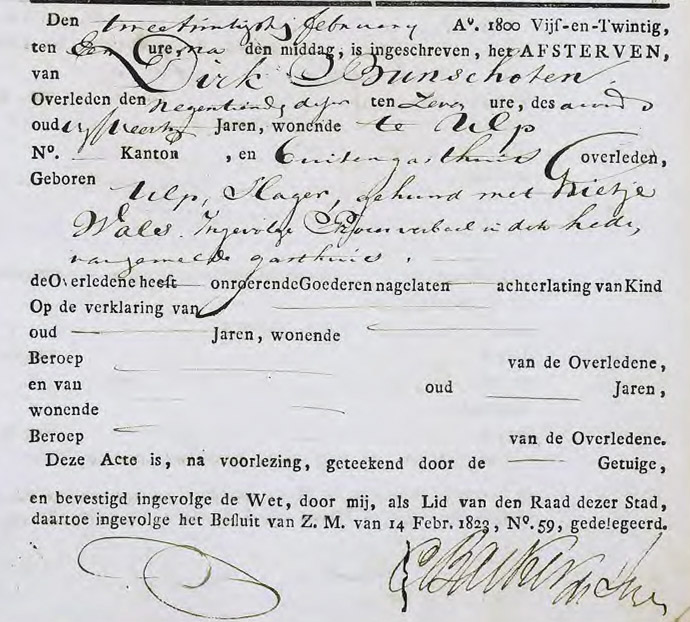 Den tweeentwintigste february Aº. 1800 Vijf-en-Twintig,
ten Een ure, na den middag, is ingeschreven, het AFSTERVEN,
van Dirk Bunschoten
Overleden den negentiende dezer ten Zeven ure, des avonds
oud Jaren, wonende te Ulp
Nº. Kanton , en buitengasthuis overleden,
Geboren Ulp, Slager, gehuwd met Grietje
Wales. Ingevolge Proces verbaal in dato heden,
van gemelde gasthuis.
de Overledene heeft onroerende Goederen nagelaten achterlating van Kind
Op de verklaring van
oud Jaren, wonende
Beroep van de Overledene,
en van oud Jaren,
wonende
Beroep van de Overledene.
Deze Acte is, na voorlezing, geteekend door de Getuige,
en bevestigd ingevolge de Wet, door mij, als Lid van den Raad dezer Stad,
daartoe ingevolge het Besluit van Z. M. van 14 Febr. 1823, Nº. 59, gedelegeerd.